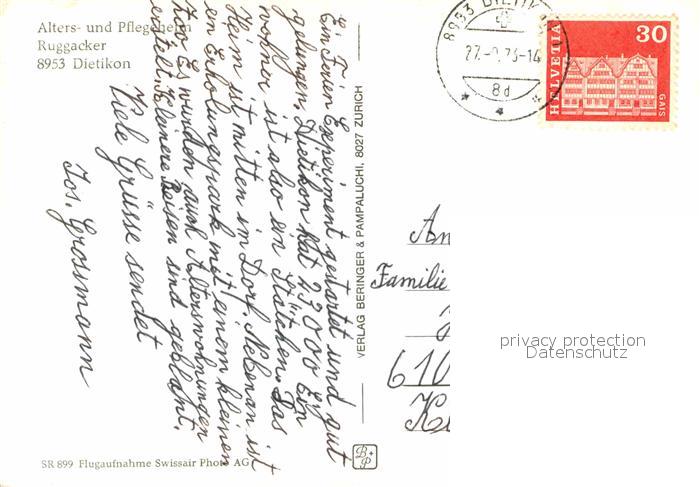 Alters- und Pflegeheim
Ruggacker
8953 Dietikon
Ein Ferien Experiment gestartet und gut
gelungen, Dietikon hat 23000 Ein
wohner ist also ein Städtchen. Das
Heim ist mitten im Dorf. Nebenan ist
ein Erholungspark mit einem kleinen
Es wurden auch Alterswohnungen
erstellt. Kleinere Reisen sind geplant.
Viele Grüsse sendet
Jos. Grossmann
SR 899 Flugaufnahme Swissair Photo AG
VERLAG BERINGER & PAMPALUCHI, 8027 ZÜRICH
B+P
8953 DIETIK
73-14
8d
HELVETIA
30
GAIS
An
Familie
610
privacy protection
Datenschutz